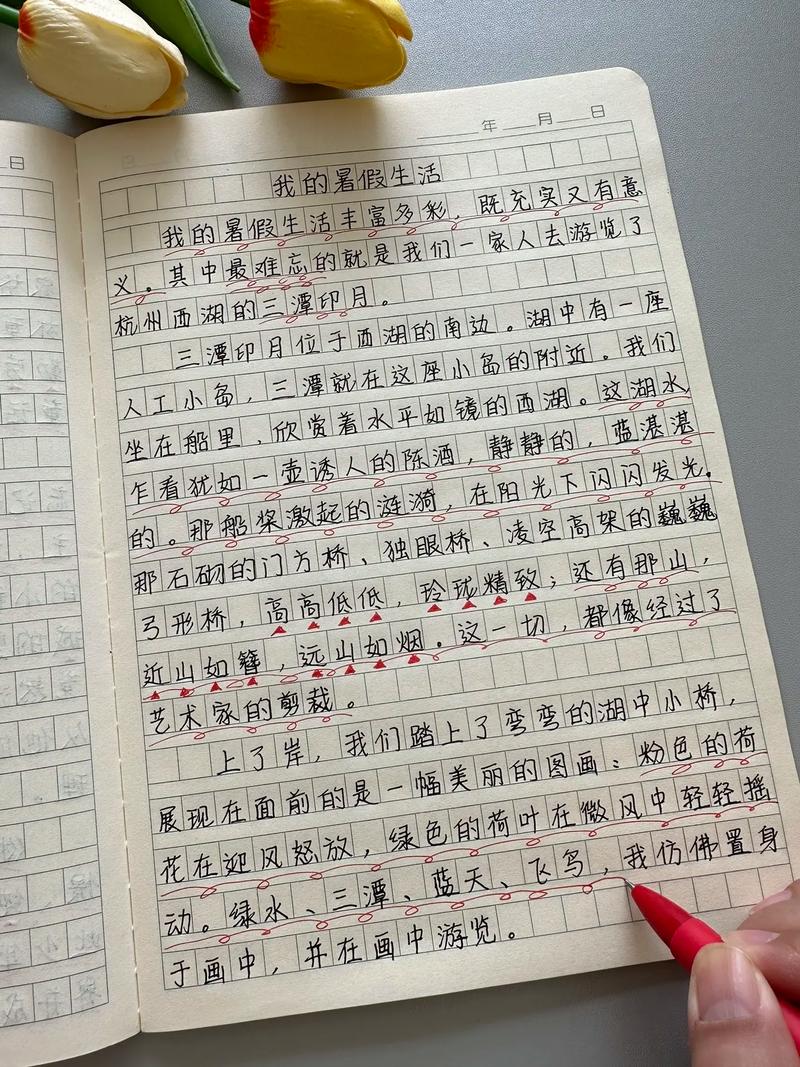 日
年 月 日
我的暑假生活
我的暑假生活丰富多彩，既充实又有意
义。其中最难忘的就是我们一家人去游览了
杭州西湖的三潭印月。
三潭印月位于西湖的南边。湖中有一座
人工小岛，三潭就在这座小岛的附近。我们
坐在船里，欣赏着水平如镜的西湖。这湖水
乍看犹如一壶诱人的陈酒，静静的，蓝湛湛
的。那船桨激起的涟漪，在阳光下闪闪发光。
那石砌的门方桥、独眼桥、凌空高架的巍巍
弓形桥，高高低低，玲珑精致；还有那山，
近山如簪，远山如烟。这一切，都像经过了
艺术家的剪裁。
上了岸，我们踏上了弯弯的湖中小桥，
展现在面前的是一幅美丽的图画：粉色的荷
花在迎风怒放，绿色的荷叶在微风中轻轻摇
动。绿水、三潭、蓝天、飞鸟，我仿佛置身
于画中，并在画中游览。